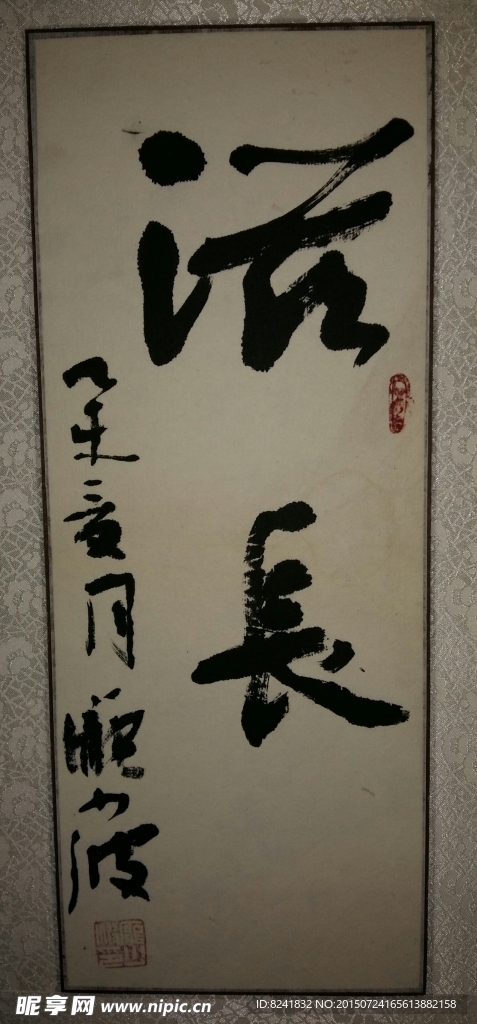 滋長
乙未夏月顾小波
昵享网 www.nipic.cn
ID:8241832 NO:20150724165613882158